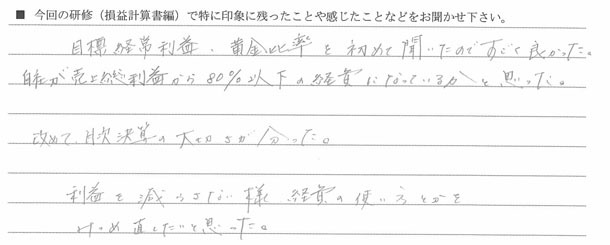 ■ 今回の研修（損益計算書編）で特に印象に残ったことや感じたことなどをお聞かせ下さい。
目標経常利益、黄金比率を初めて聞いたのですごく良かった。
自社が売上総利益から80%以下の経費になっているかと思った。
改めて、月次決算の大切さが分った。
利益を減らさない様 経費の使い方とかを
見つめ直したいと思った。